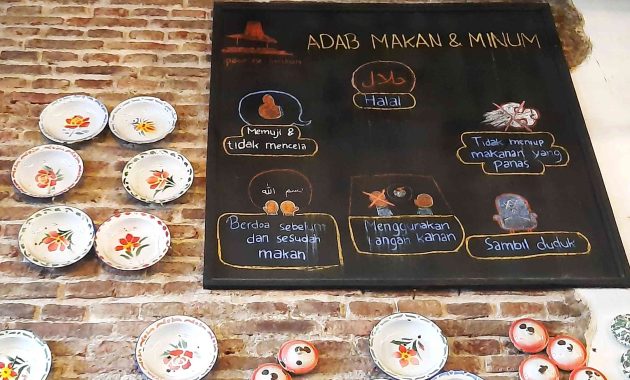 ADAB MAKAN & MINUM
حلال
Halal
Memuji &
tidak mencela
Tidak meniup
makanan yang
panas
بسم الله
Berdoa sebelum
dan sesudah
makan
Menggunakan
tangan kanan
Sambil duduk